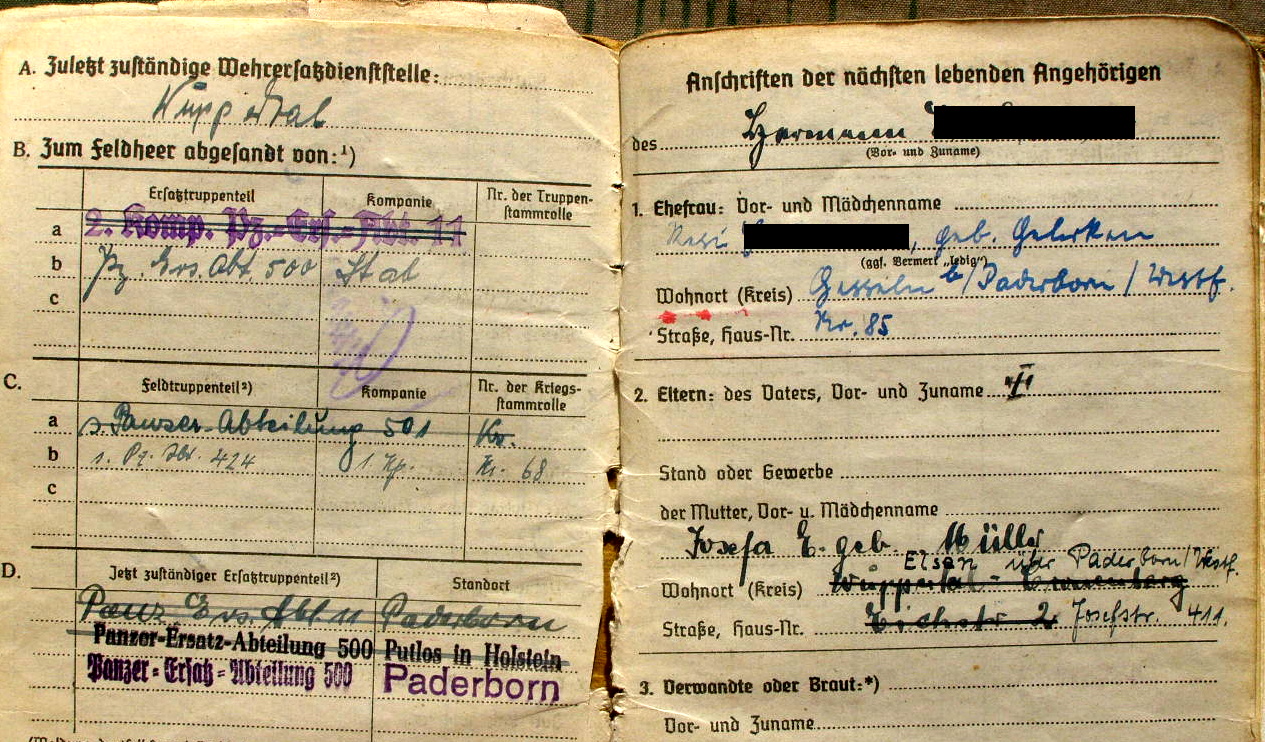 A. Zuletzt zuständige Wehrersatzdienststelle:
Wuppertal
B. Zum Feldheer abgesandt von:¹)
Ersatztruppenteil Kompanie Nr. der Truppen-
stammrolle
a 2. Komp. Pz.-Ers.-Abt. 11
b Pz. Ers. Abt. 500 Stab
c
C. Feldtruppenteil²) Kompanie Nr. der Kriegs-
stammrolle
a s. Panzer-Abteilung 501 Nr.
b s. Pz. Abt. 424 1. Kp. Nr. 68
c
D. Jetzt zuständiger Ersatztruppenteil²) Standort
Panz. Ers. Abt 11 Paderborn
Panzer-Ersatz-Abteilung 500 Putlos in Holstein
Panzer-Ersatz-Abteilung 500 Paderborn
Anschriften der nächsten lebenden Angehörigen
des Hermann
(Vor- und Zuname)
1. Ehefrau: Vor- und Mädchenname
, geb. Gelerken
(ggf. Vermerk „ledig")
Wohnort (Kreis) b/Paderborn / Westf.
Straße, Haus-Nr. Nr. 85
2. Eltern: des Vaters, Vor- und Zuname
Stand oder Gewerbe
der Mutter, Vor- u. Mädchenname
Josefa E. geb. Müller
Elsen über Paderborn/Westf.
Wohnort (Kreis) Wuppertal - Cronenberg
Straße, Haus-Nr. Eichstr 2 Josefstr. 411.
3. Verwandte oder Braut:*)
Vor- und Zuname